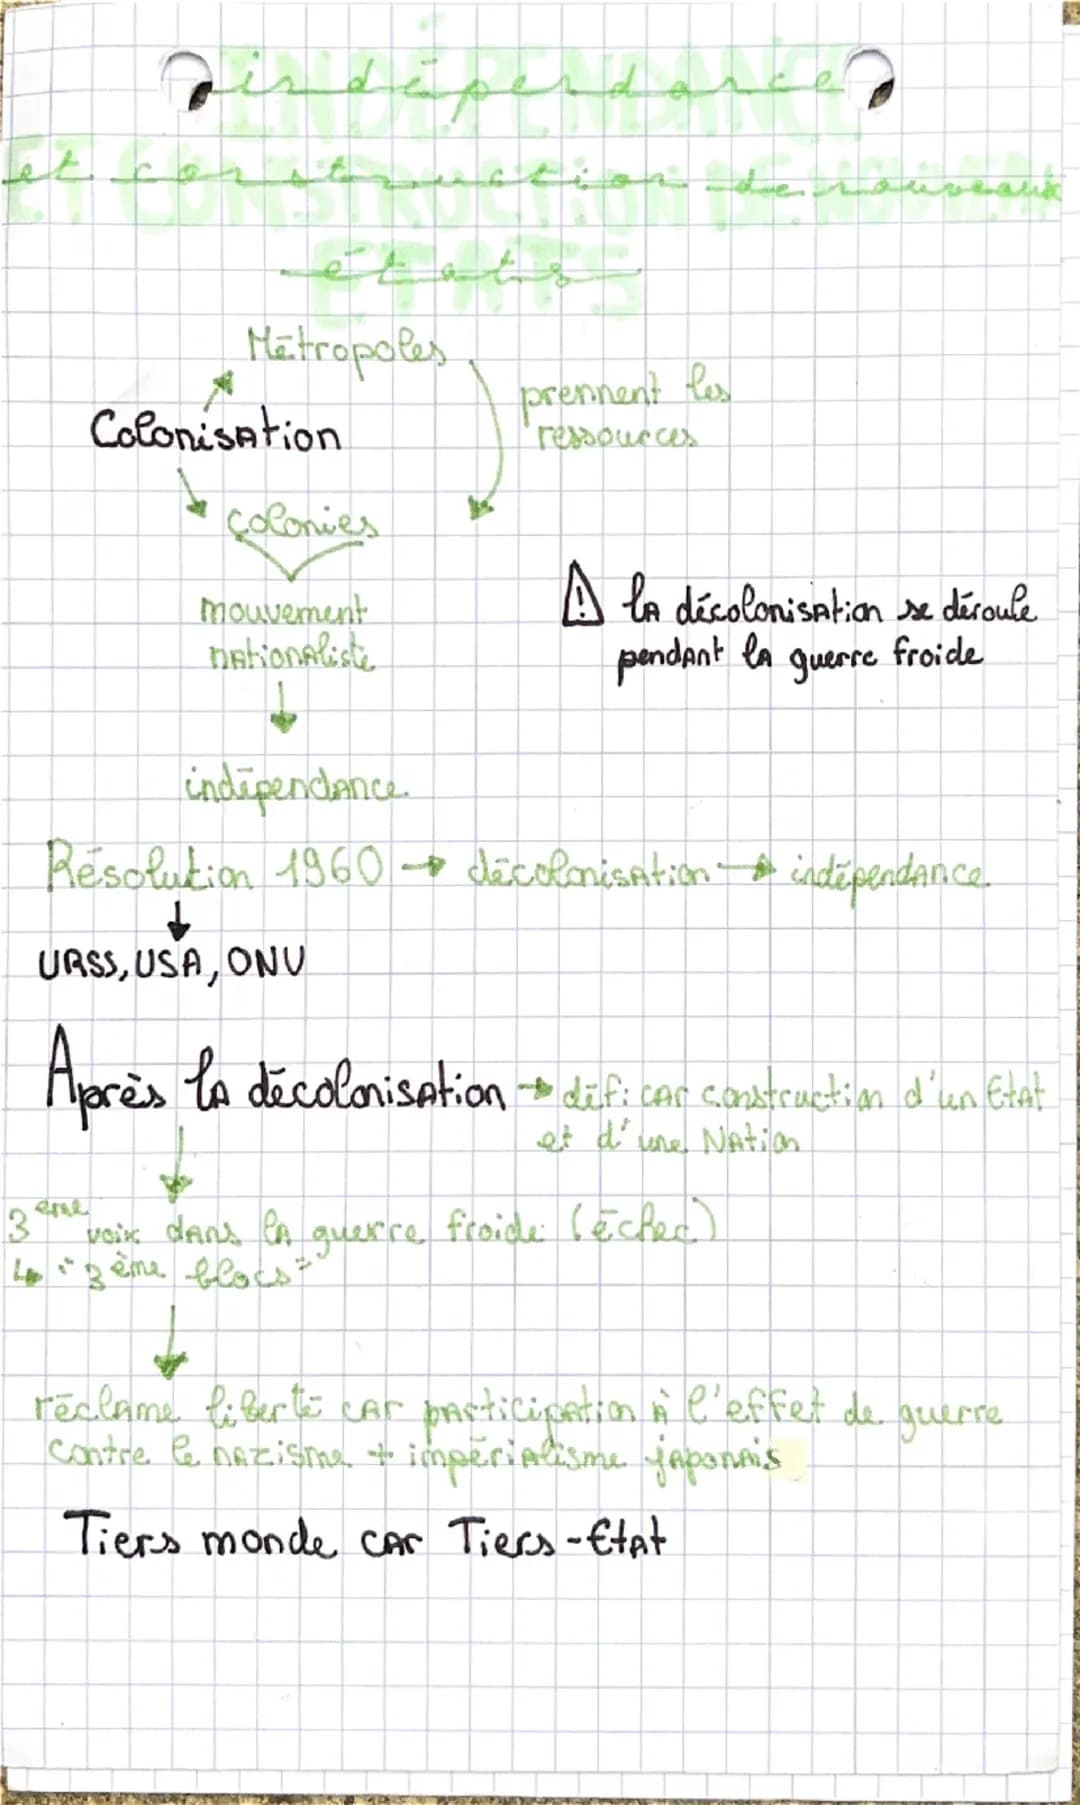 indépendance
et construction de nouveaux
états
Métropoles
prennent les
ressources
Colonisation
colonies
mouvement
nationaliste
⚠ la décolonisation se déroule
pendant la guerre froide
indépendance
Résolution 1960 → décolonisation → indépendance
URSS, USA, ONU
Après la décolonisation → défi car construction d'un État
et d'une Nation
3ème voix dans la guerre froide (échec)
↳ "3ème blocs"
réclame liberté car participation à l'effet de guerre
contre le nazisme + impérialisme japonais
Tiers monde car Tiers-État